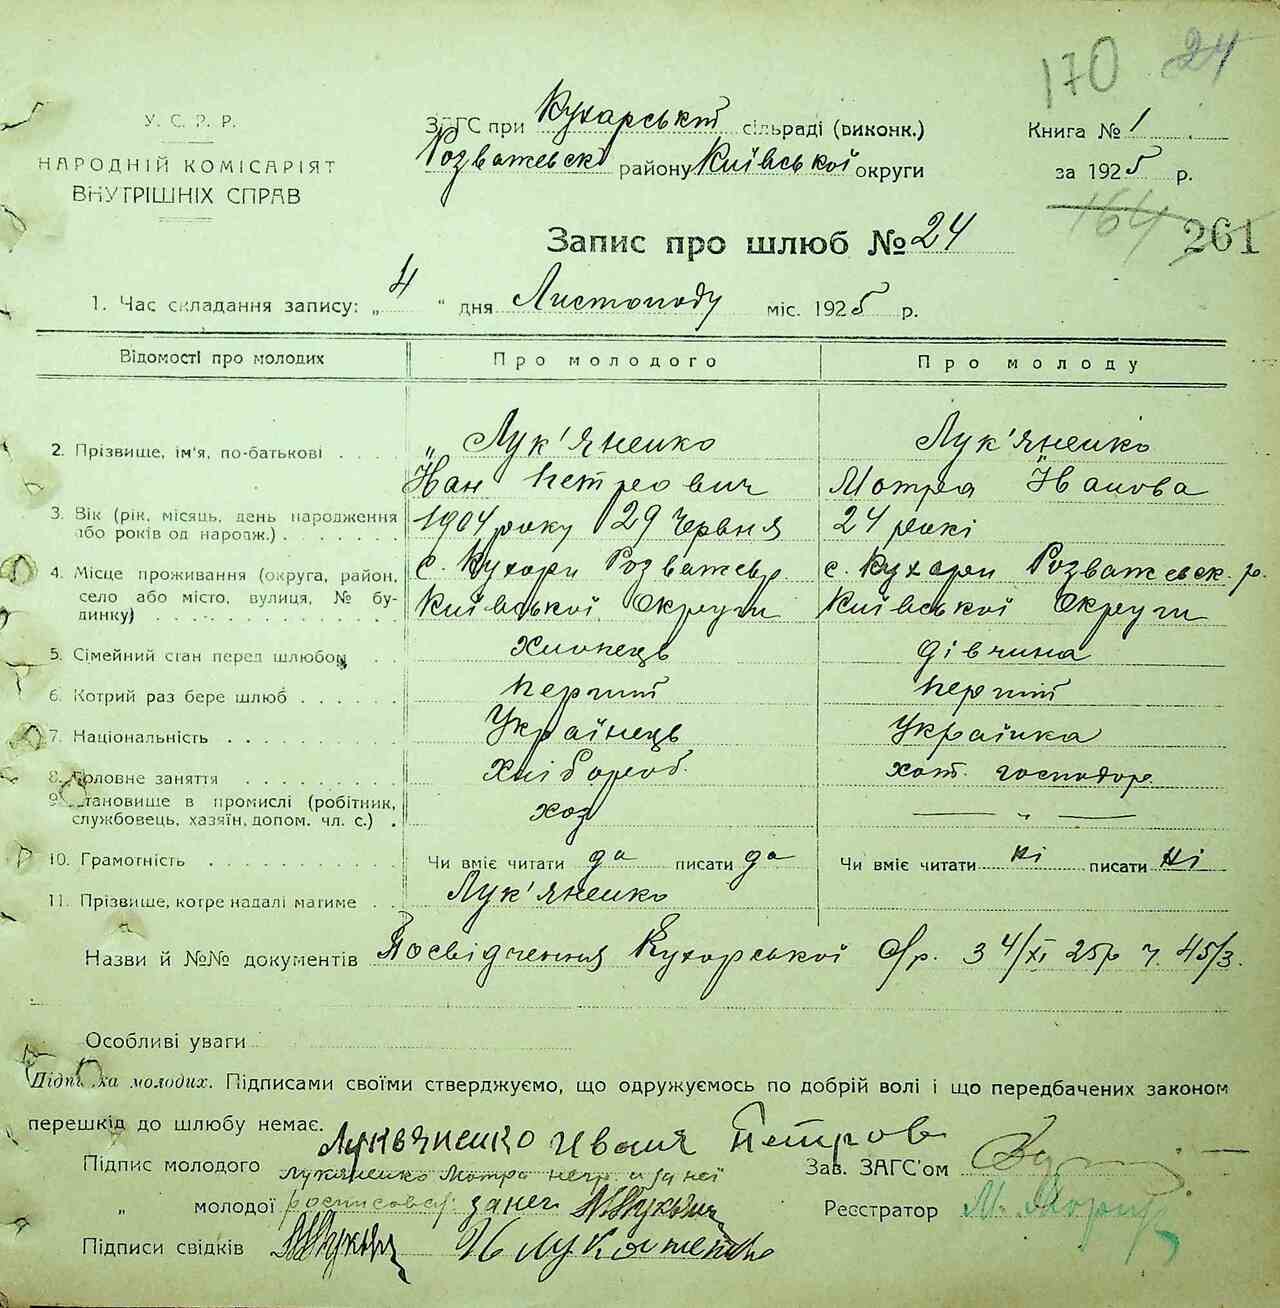 170 24
У. С. Р. Р.
НАРОДНІЙ КОМІСАРІЯТ
ВНУТРІШНІХ СПРАВ
ЗАГС при Кухарськїй сільраді (виконк.)
Розважевскі району Київської округи
Книга № 1
за 1925 р.
164 261
Запис про шлюб № 24
1. Час складання запису: „ 4 “ дня Листопаду міс. 1925 р.
Відомості про молодих Про молодого Про молоду
2. Прізвище, ім'я, по-батькові . . . . Лук'яненко Лук'яненко
Їван Петрович Мотра Їванова
3. Вік (рік, місяць, день народження або років од народж.) . . . . . . . 1904 року 29 Червня 24 рокі
4. Місце проживання (округа, район, село або місто, вулиця, № будинку) . . . . . . . . с. Кухари Розважевр. с. Кухари Розважевск. р.
Київської Округи Київської Округи
5. Сімейний стан перед шлюбом . . Хлопець дівчина
6. Котрий раз бере шлюб . . . . . . перший перший
7. Національність . . . . . . . . . Українець Українка
8. Головне заняття . . . . . . . . . Хлібороб. хат. господар.
9. Становище в промислі (робітник, службовець, хазяїн, допом. чл. с.) . хоз — „ —
10. Грамотність . . . . . . . . . . Чи вміє читати да писати да Чи вміє читати ні писати ні
11. Прізвище, котре надалі матиме . . Лук'яненко
Назви й №№ документів Посвідчення Кухарської С/р. З 4/XI 25р ч. 45/3.
Особливі уваги
Підписка молодих. Підписами своїми стверджуємо, що одружуємось по добрій волі і що передбачених законом
перешкід до шлюбу немає.
Підпис молодого Лукьяненко Иваня Петров
Зав. ЗАГС'ом
Лукяненко Мотра негр. и за неї
„ молодої росписовав:
Реєстратор М.
Підписи свідків